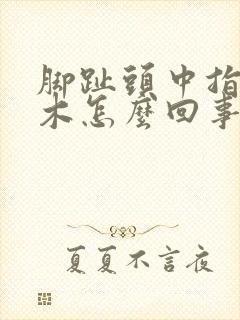 脚趾頭中指
木怎麼回事
夏夏不言夜